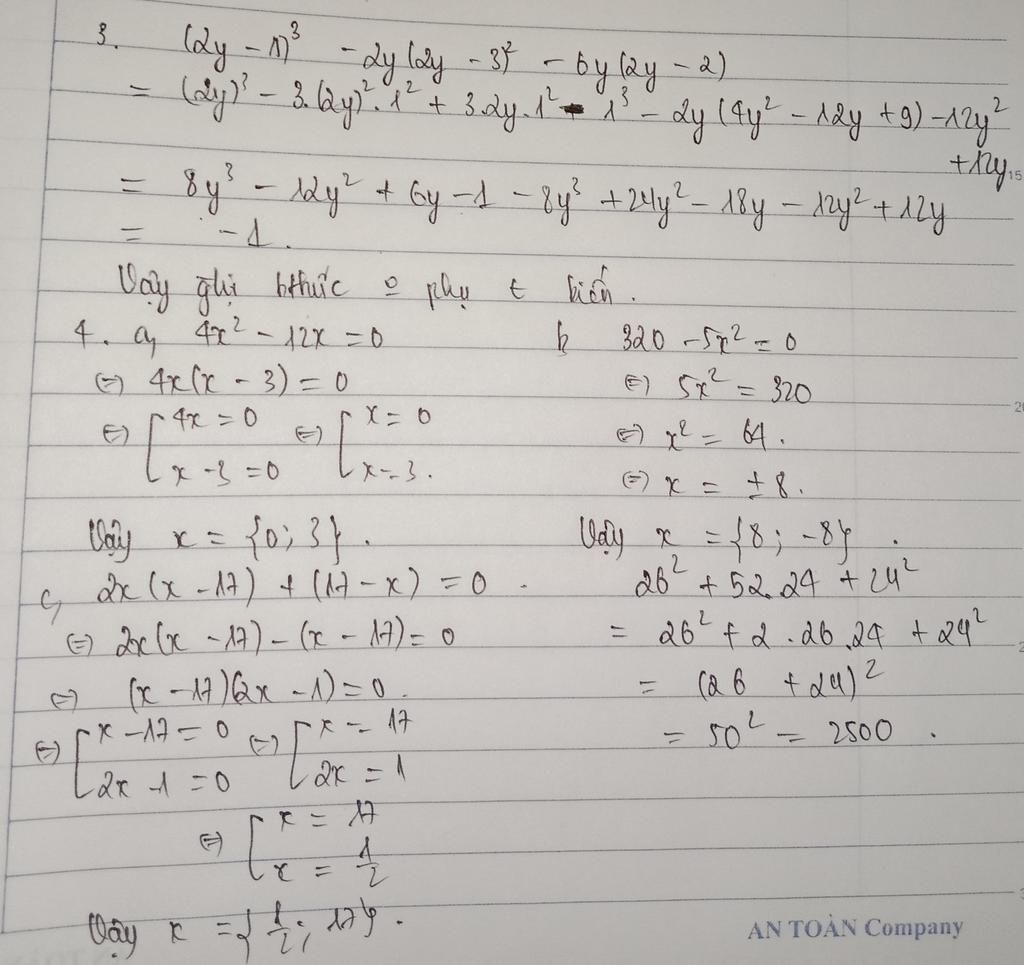 3. (2y - 1)³ - 2y(2y - 3)² - 6y(2y - 2)
= (2y)³ - 3.(2y)².1² + 3.2y.1² - 1³ - 2y(4y² - 12y + 9) - 12y²
+ 12y
= 8y³ - 12y² + 6y - 1 - 8y³ + 24y² - 18y - 12y² + 12y
= -1.
Vậy gtri bthức o phụ t biến.
4. a, 4x² - 12x = 0
⇔ 4x(x - 3) = 0
⇔ [ 4x = 0 ⇔ [ x = 0
x - 3 = 0 x = 3.
Vậy x = {0; 3}.
b 320 - 5x² = 0
⇔ 5x² = 320
⇔ x² = 64.
⇔ x = ± 8.
Vậy x = {8; -8}.
c, 2x(x - 17) + (17 - x) = 0
⇔ 2x(x - 17) - (x - 17) = 0
⇔ (x - 17)(2x - 1) = 0.
⇔ [ x - 17 = 0 ⇔ [ x = 17
2x - 1 = 0 2x = 1
⇔ [ x = 17
x = 1/2
Vậy x = {1/2; 17}.
26² + 52.24 + 24²
= 26² + 2.26.24 + 24²
= (26 + 24)²
= 50² = 2500.
15
AN TOÀN Company